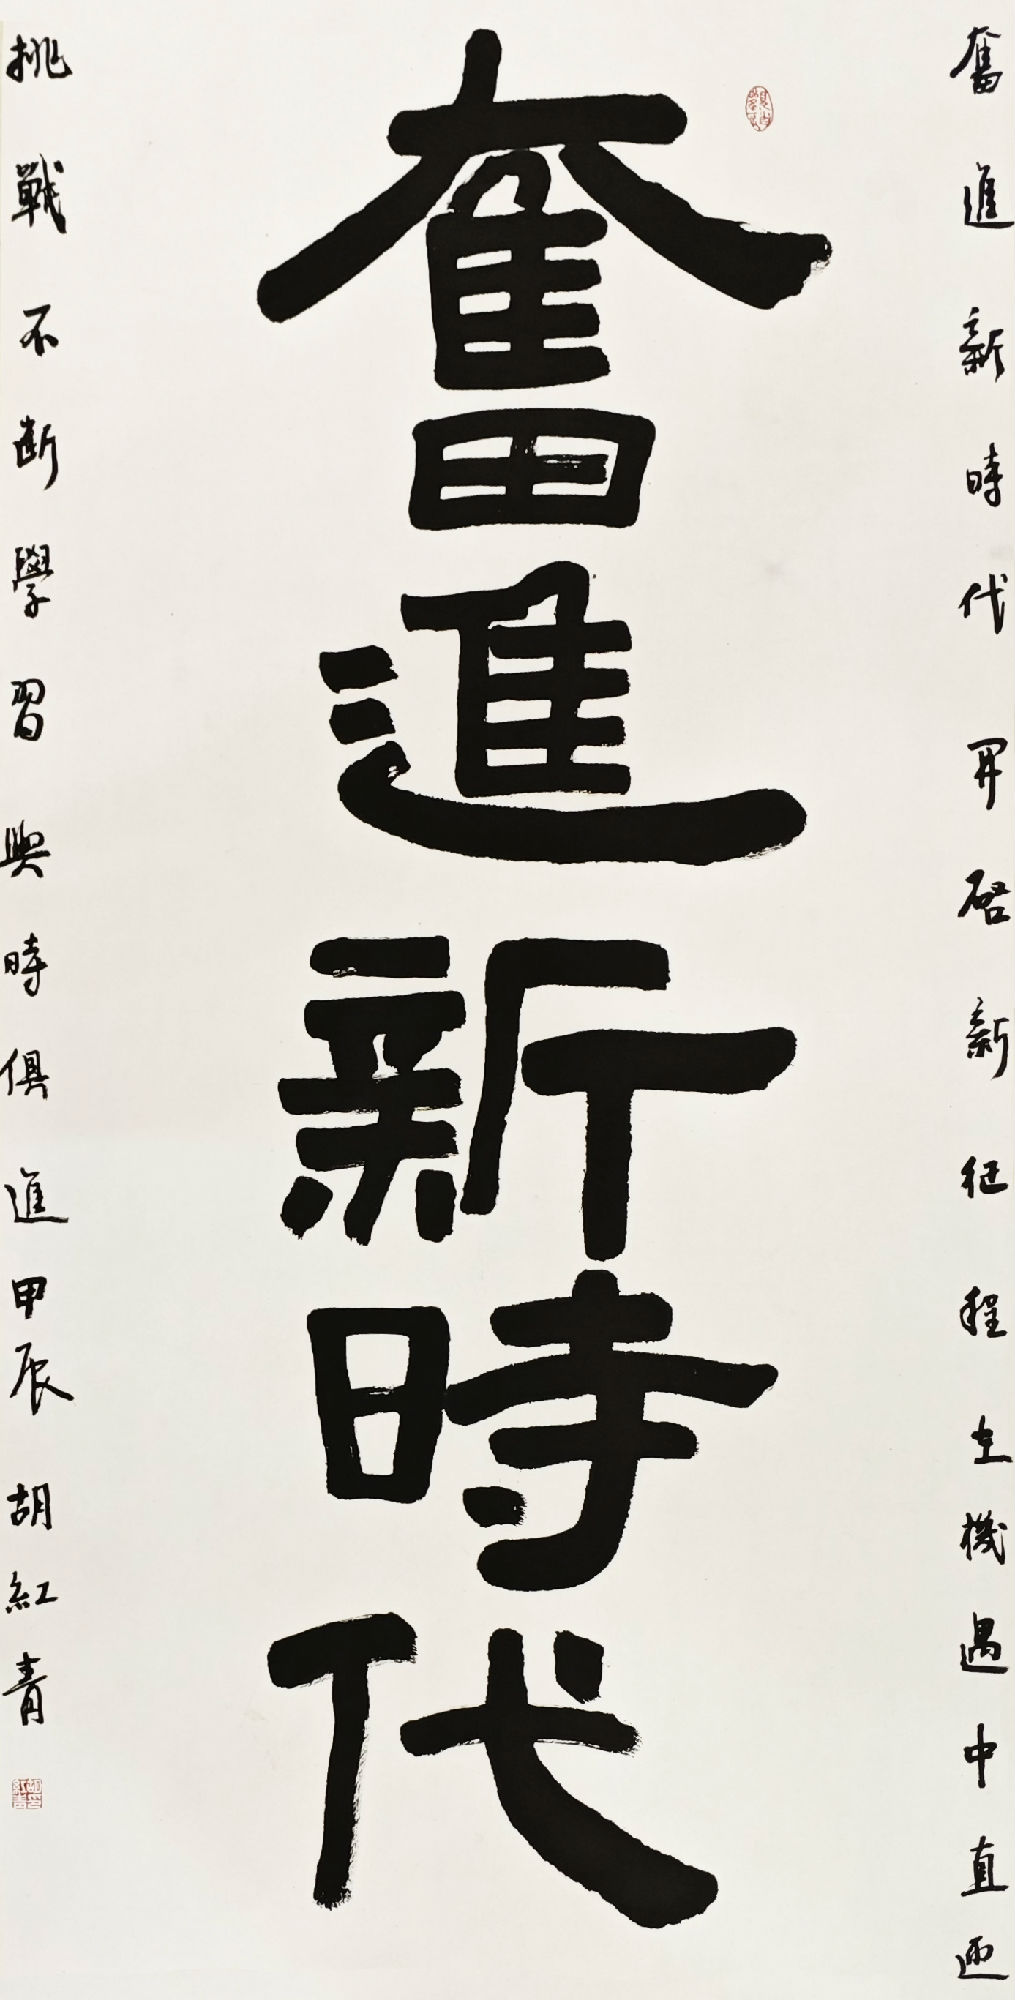 奮進新時代
奮進新時代開啓新征程在機遇中直面
挑戰不斷學習與時俱進甲辰胡紅青